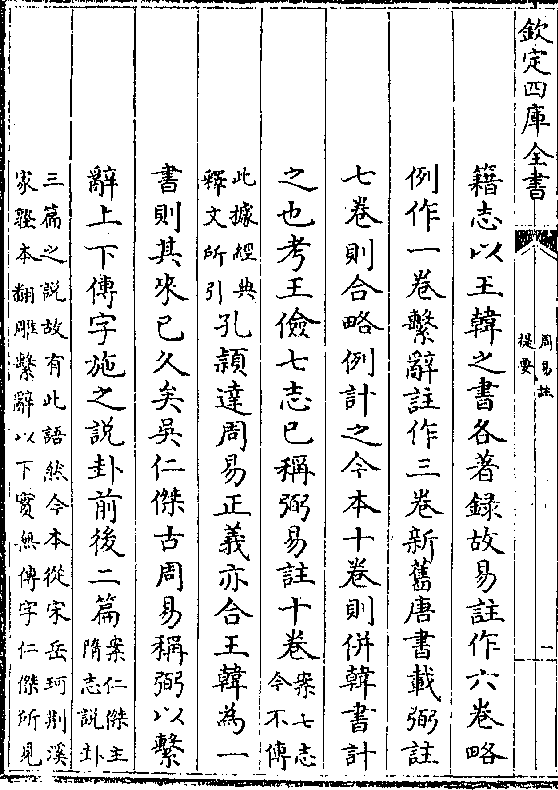 欽定四庫全書
周易註
提要
二
籍志以王韓之書各著録故易註作六卷略
例作一卷繫辭註作三卷新舊唐書載弼註
七卷則合略例計之今本十卷則併韓書計
之也考王儉七志已稱弼易註十卷案七志今不傳
此據經典釋文所引孔頴達周易正義亦合王韓為一
書則其來已久矣吳仁傑古周易稱弼以繫
辭上下傳字施之說卦前後二篇案仁傑主隋志說卦
三篇之說故有此語然今本從宋岳珂荆溪
家塾本翻雕繫辭以下實無傳字仁傑所見